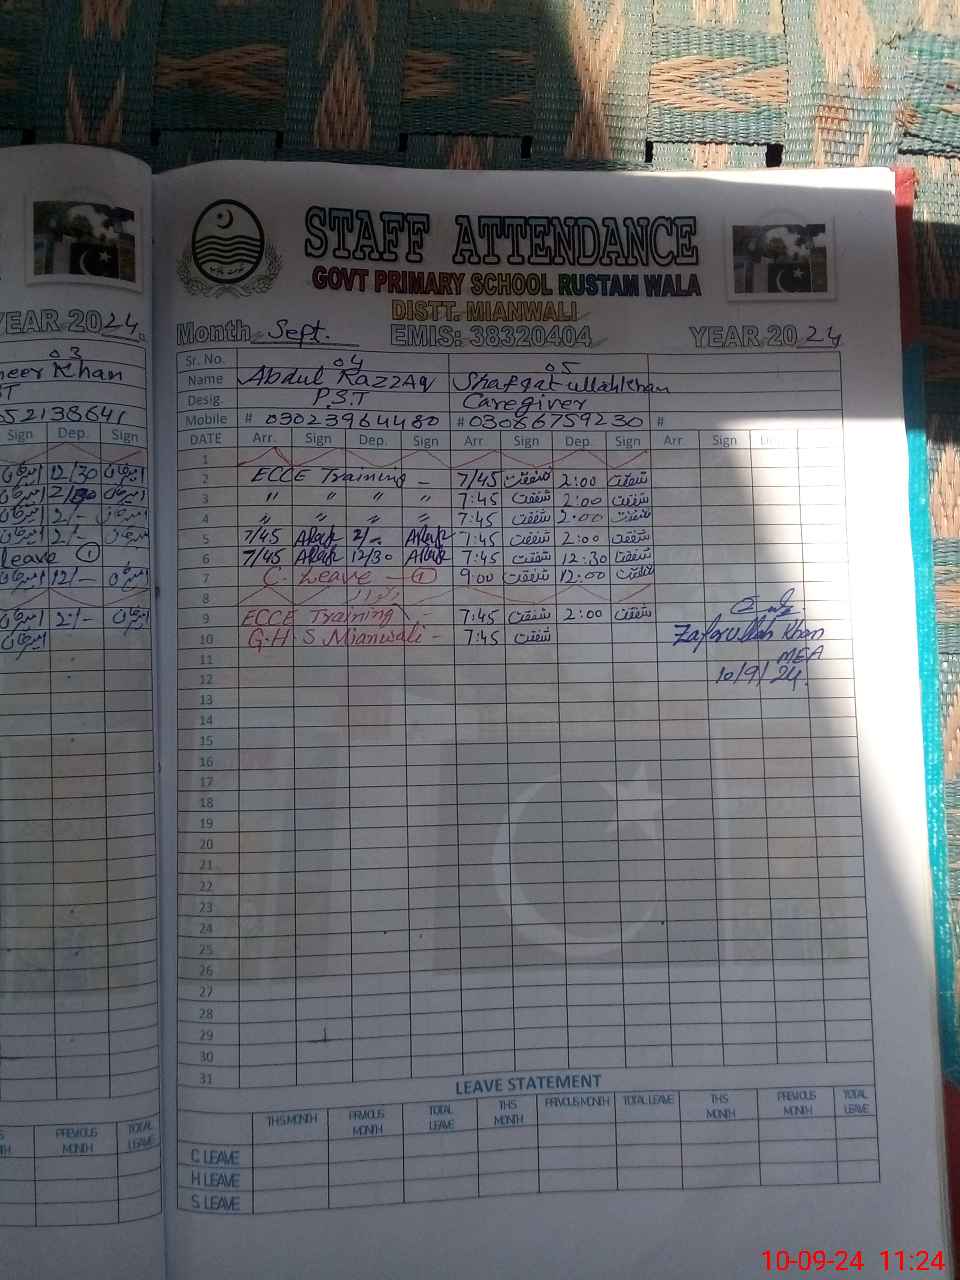 STAFF ATTENDANCE
GOVT PRIMARY SCHOOL RUSTAM WALA
DISTT. MIANWALI
YEAR 2024
Month Sept. EMIS: 38320404 YEAR 2024
Sr. No. 04 05
03
Name Abdul Razzaq Shafqat ullah Khan
Khan
Desig. P.S.T Caregiver
Mobile # 03023964480 # 03086759230 #
Sign Dep. Sign
DATE Arr. Sign Dep. Sign Arr. Sign Dep. Sign Arr Sign
1
12/30
2 ECCE Training - 7/45 شفقت 2:00 شفقت
3 " " " " 7:45 شفقت 2:00 شفقت
2/-
4 " " " " 7:45 شفقت 2:00 شفقت
2/-
5 7/45 2/- 7:45 شفقت 2:00 شفقت
leave 1
6 7/45 12/30 7:45 شفقت 12:30 شفقت
12/-
7 C. Leave - 1 9:00 شفقت 12:00 شفقت
8 اتوار
2/-
9 ECCE Training - 7:45 شفقت 2:00 شفقت
10 G.H.S Mianwali - 7:45 شفقت
Zafarullah Khan
MEA
10/9/24
11
12
13
14
15
16
17
18
19
20
21
22
23
24
25
26
27
28
29
30
31
LEAVE STATEMENT
THIS MONTH PRVIOUS MONTH TOTAL LEAVE THIS MONTH PRVIOUS MONTH TOTAL LEAVE THIS MONTH PREVIOUS MONTH TOTAL LEAVE
PREVIOUS MONTH TOTAL LEAVE
C LEAVE
H LEAVE
S LEAVE
10-09-24 11:24